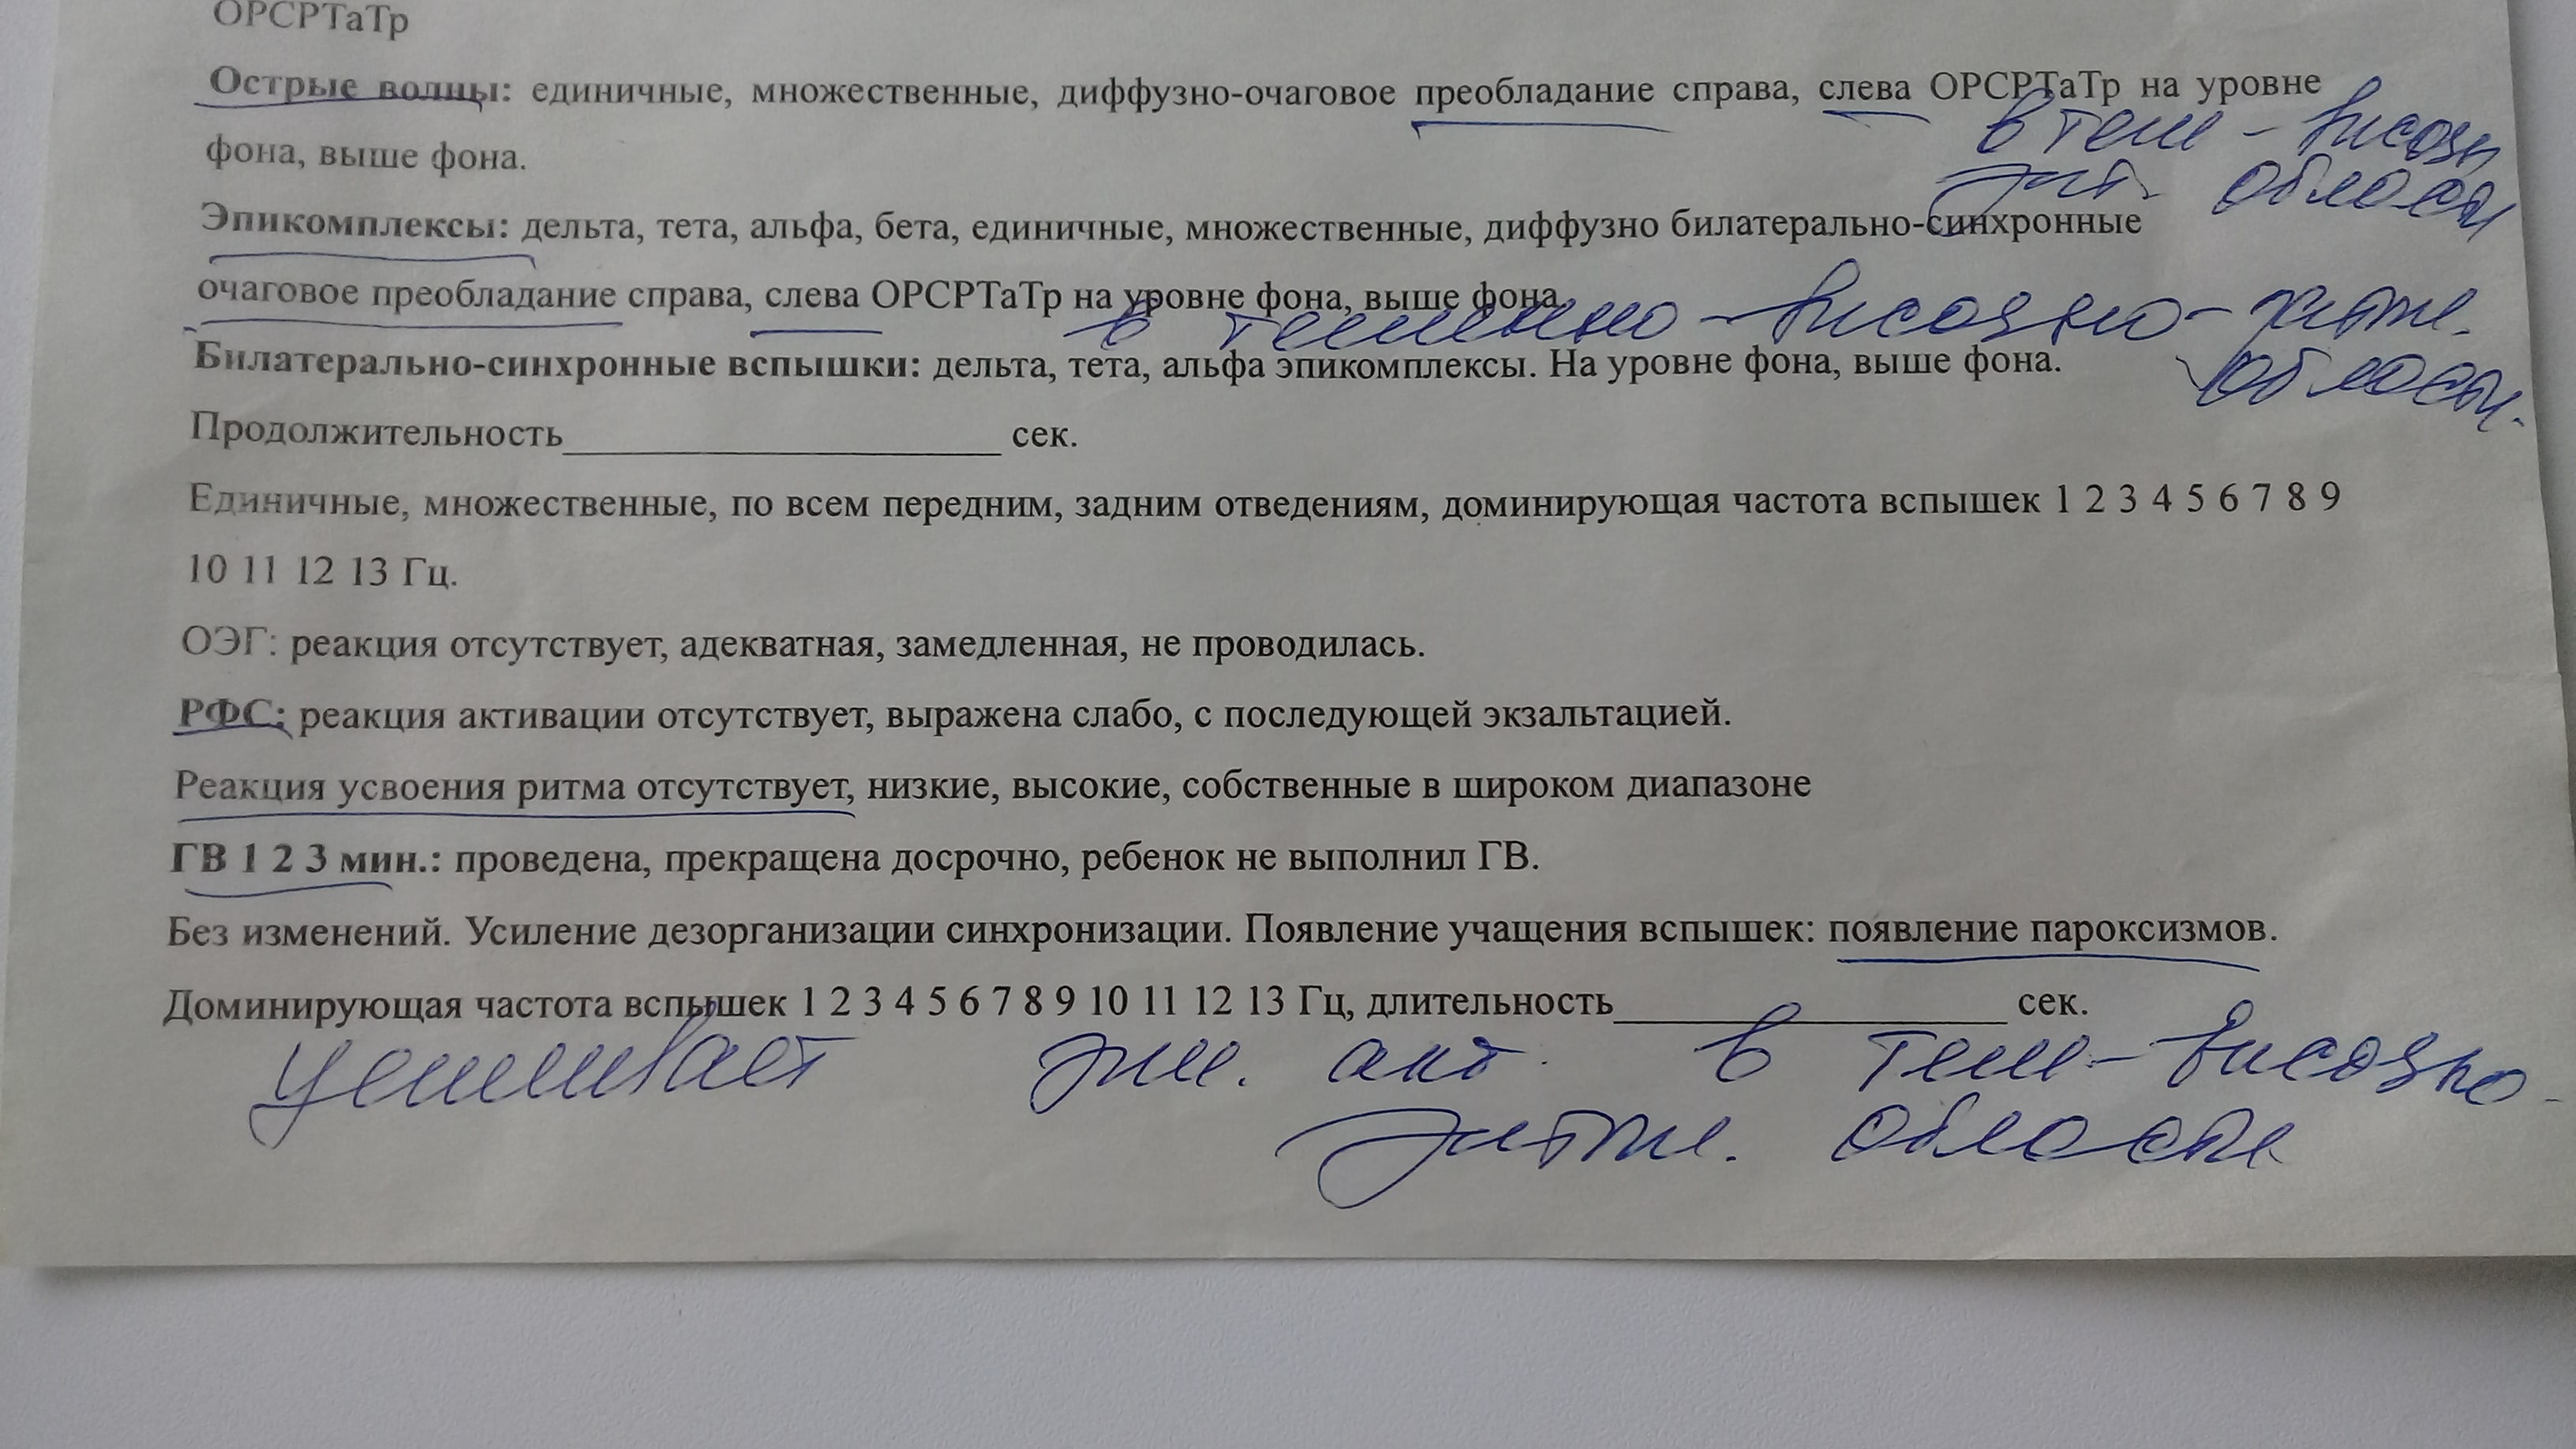 ОРСРТаТр
Острые волны: единичные, множественные, диффузно-очаговое преобладание справа, слева ОРСРТаТр на уровне
в тем - височн
фона, выше фона.
области
Эпикомплексы: дельта, тета, альфа, бета, единичные, множественные, диффузно билатерально-синхронные
очаговое преобладание справа, слева ОРСРТаТр на уровне фона, выше фона.
в теменно - височно -
Билатерально-синхронные вспышки: дельта, тета, альфа эпикомплексы. На уровне фона, выше фона.
области.
Продолжительность____________________ сек.
Единичные, множественные, по всем передним, задним отведениям, доминирующая частота вспышек 1 2 3 4 5 6 7 8 9
10 11 12 13 Гц.
ОЭГ: реакция отсутствует, адекватная, замедленная, не проводилась.
РФС: реакция активации отсутствует, выражена слабо, с последующей экзальтацией.
Реакция усвоения ритма отсутствует, низкие, высокие, собственные в широком диапазоне
ГВ 1 2 3 мин.: проведена, прекращена досрочно, ребенок не выполнил ГВ.
Без изменений. Усиление дезорганизации синхронизации. Появление учащения вспышек: появление пароксизмов.
Доминирующая частота вспышек 1 2 3 4 5 6 7 8 9 10 11 12 13 Гц, длительность__________________ сек.
усиливает эпи. акт. в тем - височно -
области